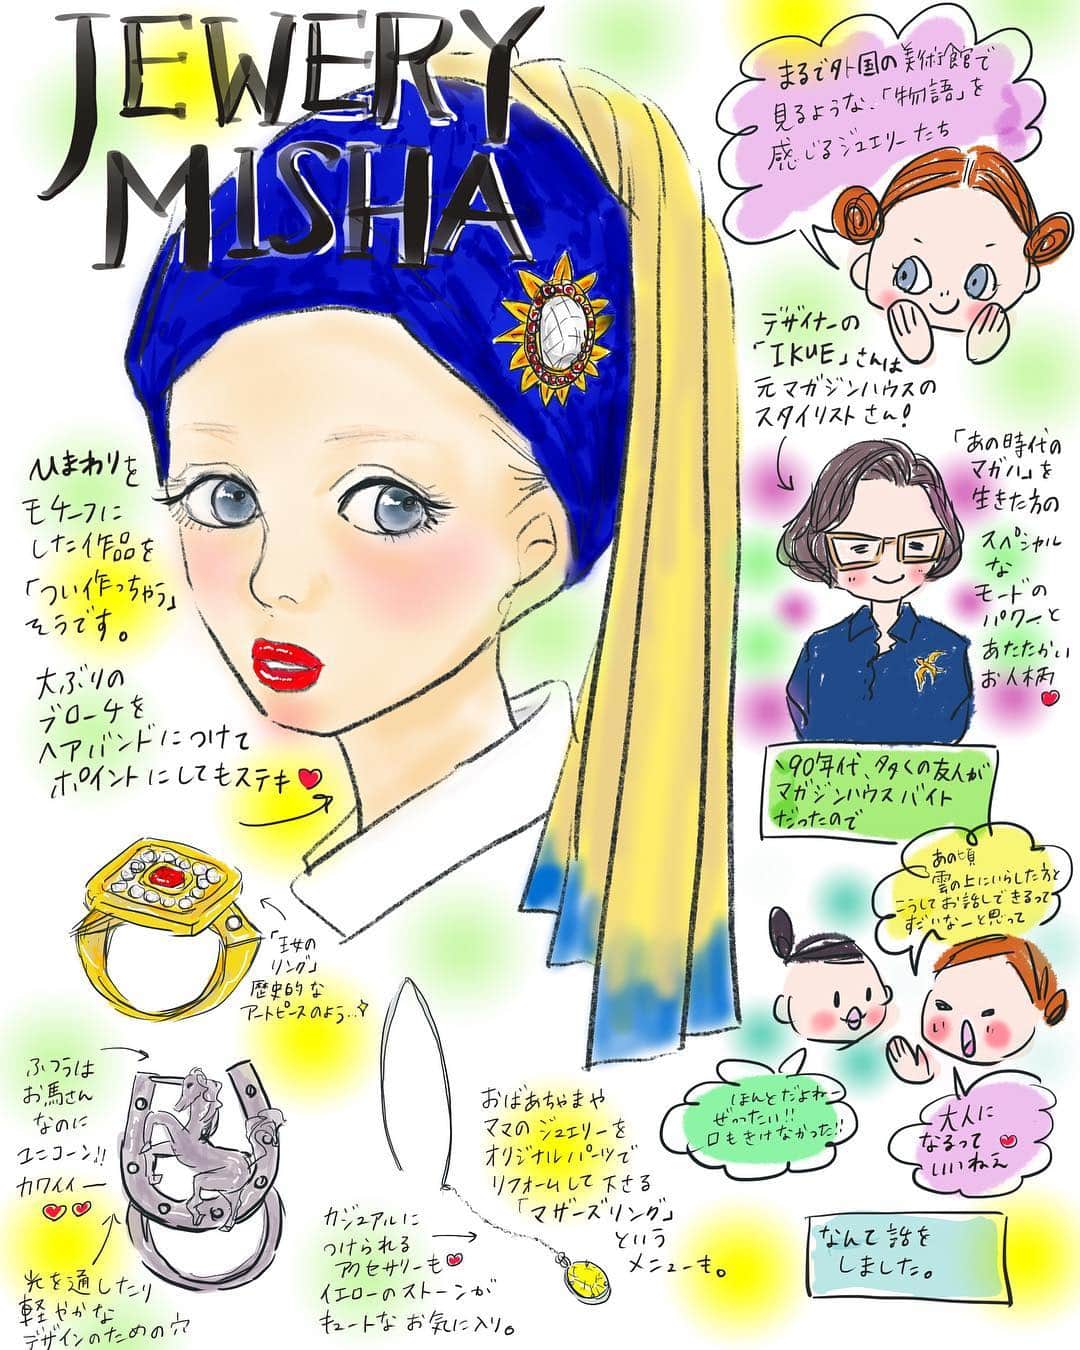 JEWERY
MISHA
まるで外国の美術館で
見るような、「物語」を
感じるジュエリーたち
デザイナーの
「IKUE」さんは
元マガジンハウスの
スタイリストさん!
「あの時代の
マガハ」を
生きた方の
スペシャル
な
モードの
パワーと
あたたかい
お人柄
ひまわりを
モチーフに
した作品を
「つい作っちゃう」
そうです。
大ぶりの
ブローチを
ヘアバンドにつけて
ポイントにしてもステキ
'90年代、多くの友人が
マガジンハウスバイト
だったので
あの頃
雲の上にいらした方と
こうしてお話しできるって
すごいなーと思って
ほんとだよねー
ぜったい!!
口もきけなかった!!
大人に
なるって
いいねえ
なんて話を
しました。
「王女の
リング」
歴史的な
アートピースのよう‥
ふつうは
お馬さん
なのに
ユニコーン!!
カワイイー
光を通したり
軽やかな
デザインのための穴
おばあちゃまや
ママのジュエリーを
オリジナルパーツで
リフォームして下さる
「マザーズリング」
という
メニューも。
カジュアルに
つけられる
アクセサリーも
イエローのストーンが
キュートなお気に入り。